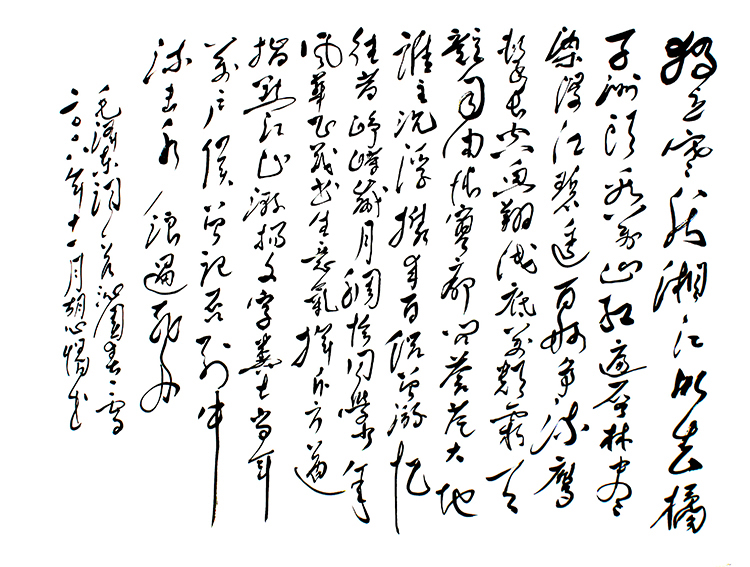 独立寒秋湘江北去橘
子洲头看万山红遍层林尽
染漫江碧透百舸争流鹰
击长空鱼翔浅底万类霜天
竞自由怅寥廓问苍茫大地
谁主沉浮携来百侣曾游忆
往昔峥嵘岁月稠恰同学少年
风华正茂书生意气挥斥方遒
指点江山激扬文字粪土当年
万户侯曾记否到中
流击水浪遏飞舟
毛泽东词沁园春雪
二〇〇八年十一月胡心书